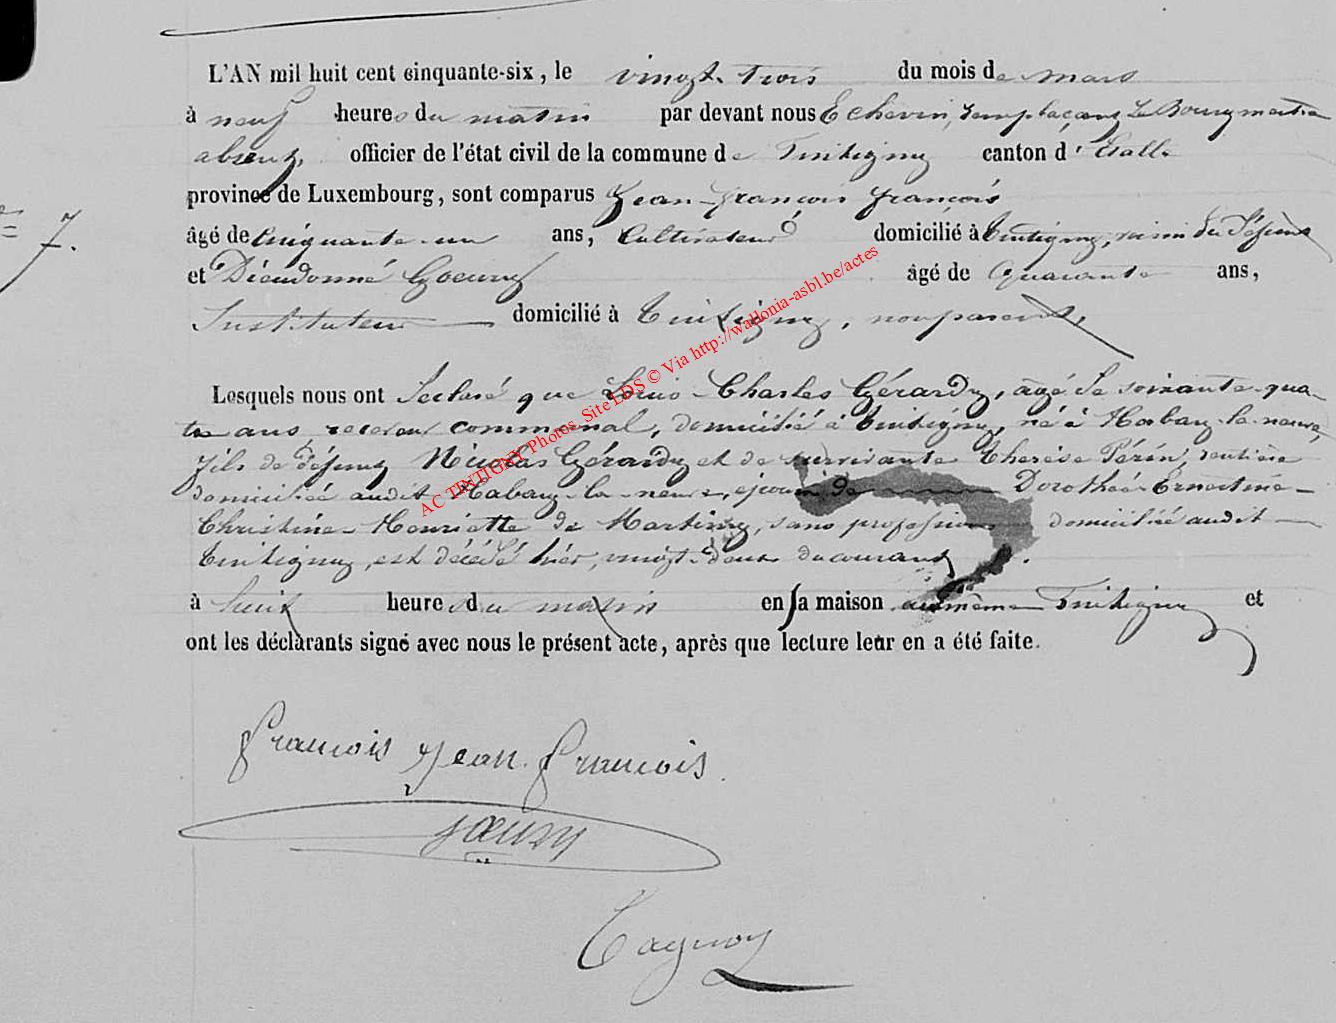 L'AN mil huit cent cinquante-six, le vingt-trois du mois de mars
à neuf heures du matin par devant nous Echevin, remplaçant Le Bourgmestre
absent, officier de l'état civil de la commune de Tintigny canton d'Etalle
province de Luxembourg, sont comparus Jean-françois françois
7.
âgé de Cinquante-un ans, Cultivateur domicilié à Tintigny, voisin du défunt
et Dieudonné Goeury âgé de Quarante ans,
Instituteur domicilié à Tintigny, non parents,
Lesquels nous ont déclaré que Louis-Charles Gérardy, âgé de soixante-qua-
tre ans, receveur communal, domicilié à Tintigny, né à Habay-la-neuve,
fils de défunt Nicolas Gérardy et de survivante Thérèse Périn, rentière
domiciliée audit Habay-la-neuve, époux de Dorothée-Ernestine-
Christine-Henriette de Martiny, sans profession domiciliée audit
Tintigny, est décédé hier, vingt-deux du courant
à huit heures du matin en sa maison au même Tintigny et
ont les déclarants signé avec nous le présent acte, après que lecture leur en a été faite.
francois Jean-francois
Goeury
Tagnoy
AC TINTIGNY Photos Site LDS © Via http://wallonia-asbl.be/actes